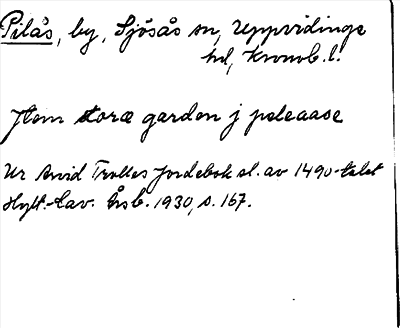 Pilås, by, Sjösås sn, Uppvidinge
hd, Kronob. l.
Jtem storæ garden j peleaase
Ur Arvid Trolles Jordebok sl. av 1490-talet
Hylt.-Cav. Årsb. 1930, s. 167.